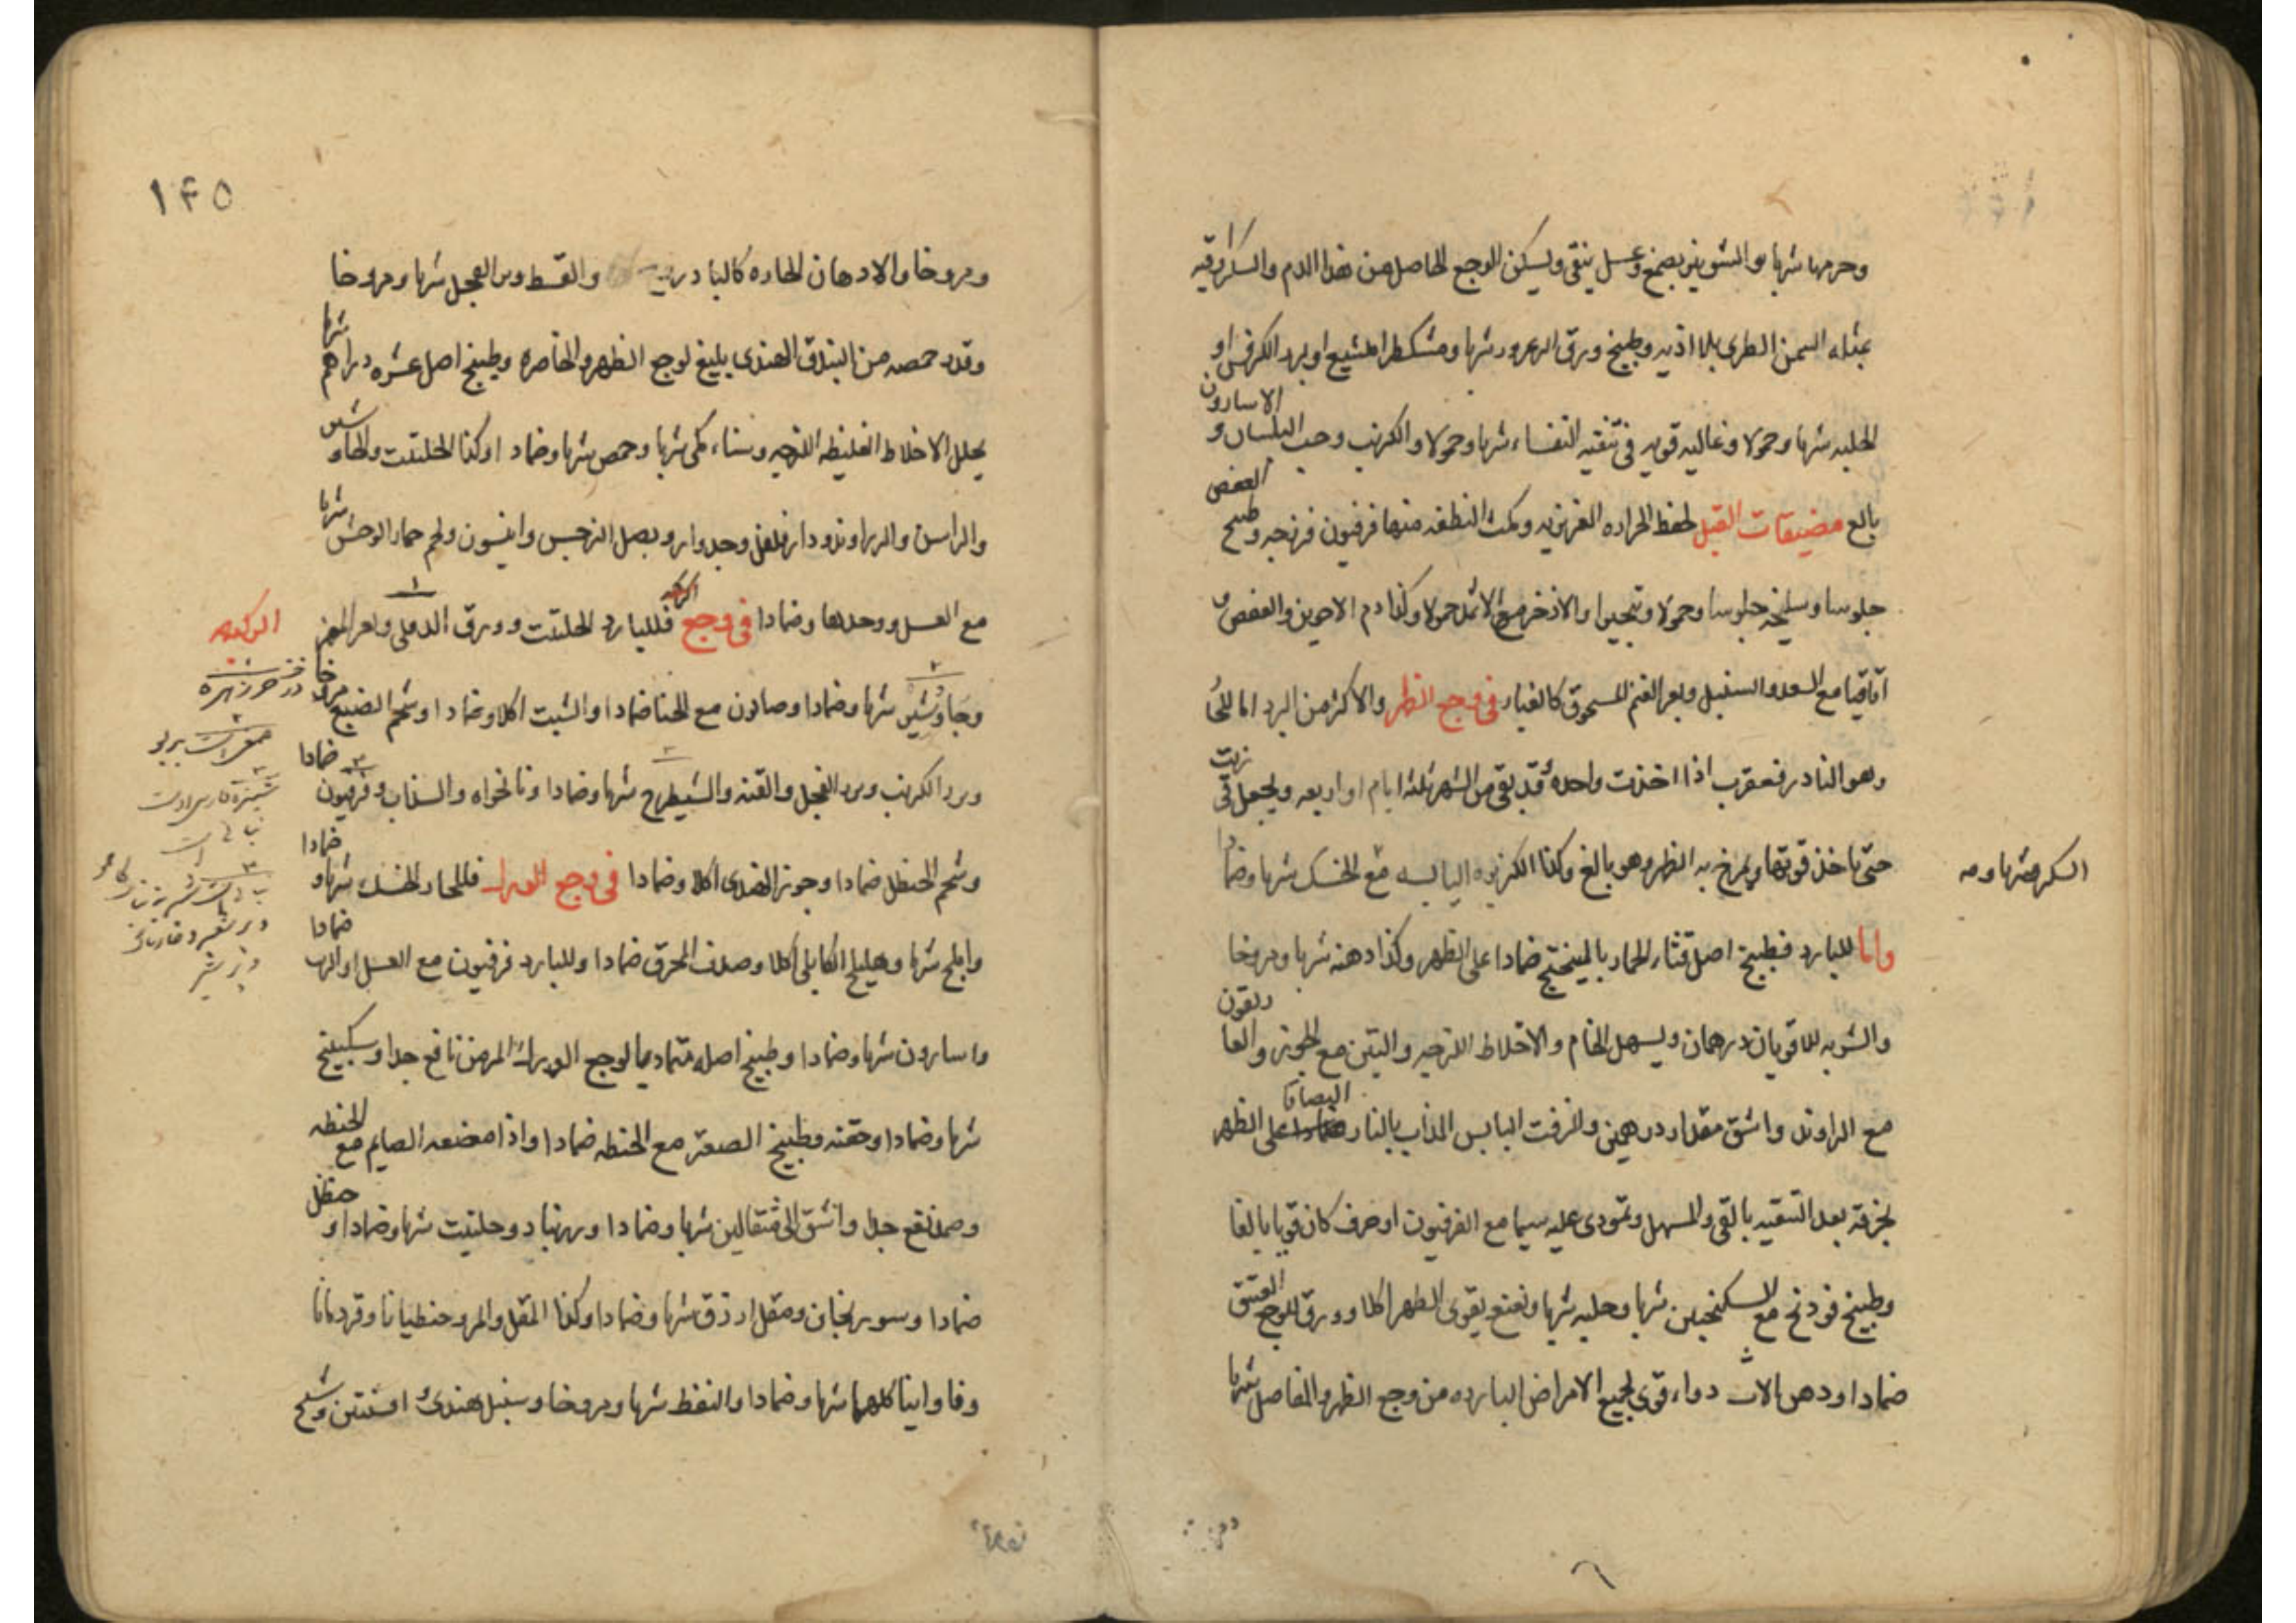 وحرمها شربا والشونيز بصمغ وعسل ينقى ويسكن الوجع الحاصل من هذا الدم والسكر
بمثله السمن الطرى بلا اذيه وطبيخ ورق الزعرور شربا ومشكطرامشيع او بزر الكرفس او
الحلبه شربا وحمولا وغاليه قويه فى تنقيه النفساء شربا وحمولا والكرنب وحب البلسان و الاسارون
بالغ مضيقات القبل لحفظ الحراره الغريزيه ومكث النطفه منها فرفيون فرزجه وطبيخ العفص
جلوسا وسليخه جلوسا وحمولا وتبخيرا والاذخر مع الاثمد حمولا وكذا دم الاخوين والعفص و
اقاقيا مع السعد والسنبل وبعر الغنم المسحوق كالغبار فى وجع الظهر والاكثر من البرد اما للحار
وهو النادر فعقرب اذا اخذت واحده وقد بقى من الشهر ثلثه ايام او اربعه ويجعل فى زيت
حتى تاخذ قوتها ويمرخ به الظهر وهو بالغ وكذا الكزبره اليابسه مع الخسك شربا وضمادا
السكر شربا و
واما للبارد فطبيخ اصل قثاء الحمار بالميبختج ضمادا على الظهر وكذا دهنه شربا ومروخا
والشربه للاقويا درهمان ويسهل الخام والاخلاط اللزجه والتين مع الجوز والعاريقون
مع الراوند واشق مقدار درهمين والزفت اليابس المذاب بالنار الصاقا على الظهر
بخرقة بعد التنقيه بالقى والمسهل وتمودى عليه سيما مع الفرفيون او حرف كان قويا بالغا
وطبيخ فودنج مع السكنجبين شربا وحلبه شربا ونعنع يقوى الظهر اكلا وورق للوجع العتيق
ضمادا ودهن دواء قوى لجميع الامراض البارده من وجع الظهر والمفاصل شربا
١٤٥
ومروخا والادهان الحاره كالنادرين والقسط وبزر الفجل شربا ومروخا
وقدر حمصه من البندق الهندى بليغ لوجع الظهر والخاصره وطبيخ اصل عشره دراهم شربا
يحلل الاخلاط الغليظه اللزجه وسناء مكى شربا وحمص شربا وضمادا وكذا الحلتيت والجاوشير
والراسن والزراوند ودارفلفل وجدوار وبصل النرجس وانيسون ولحم حمار الوحش شربا
مع العسل ووحدها وضمادا فى وجع الركبه فللبارد الحلتيت وورق الدفلى وبعر المعز
وجاوشير شربا وضمادا وصابون مع الحنا ضمادا والشبت اكلا وضمادا وشحم الضبع مروخا
وبزر الكرنب وبزر الفجل والقنه والشيطرج شربا وضمادا ونانخواه والسذاب وفرفيون ضمادا
وشحم الحنظل ضمادا وجوز الهندى اكلا وضمادا فى وجع الوراك فللحار الخشك شربا و ضمادا
واملج شربا وهليلج الكابلى اكلا وصدف المحرق ضمادا وللبارد فرفيون مع العسل او الرب ضمادا
واسارون شربا وضمادا وطبيخ اصله متماديا لوجع الوراك المزمن نافع جدا وسكبينج
شربا وضمادا وحقنه وطبيخ الصعتر مع الحنطه ضمادا واذا مضغه الصايم مع الحنطه
وضمد نفع جدا واشق الى مثقالين شربا وضمادا وزرنباد وحلتيت شربا وضمادا و حنظل
ضمادا وسورنجان ومقل ازرق شربا وضمادا وكذا المقل والمر وجنطيانا وقردمانا
وفاوانيا كلهما شربا وضمادا والنفط شربا ومروخا وسنبل هندى افسنتين وشيح
الركبه